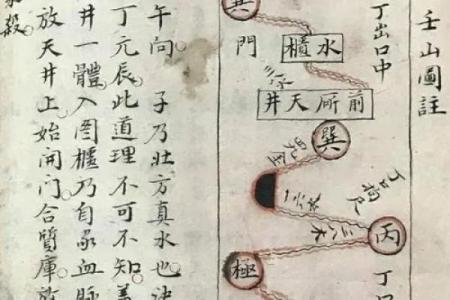 壬山圖註
丁出口中
巽
水櫃
門
前厛天井
巽
丙
極
丁口
午向 子乃壯方真水也
丁元辰此道理不可不知蓋
井一體入圈櫃乃自家血脈
放天井上始開門合質庫放
殺